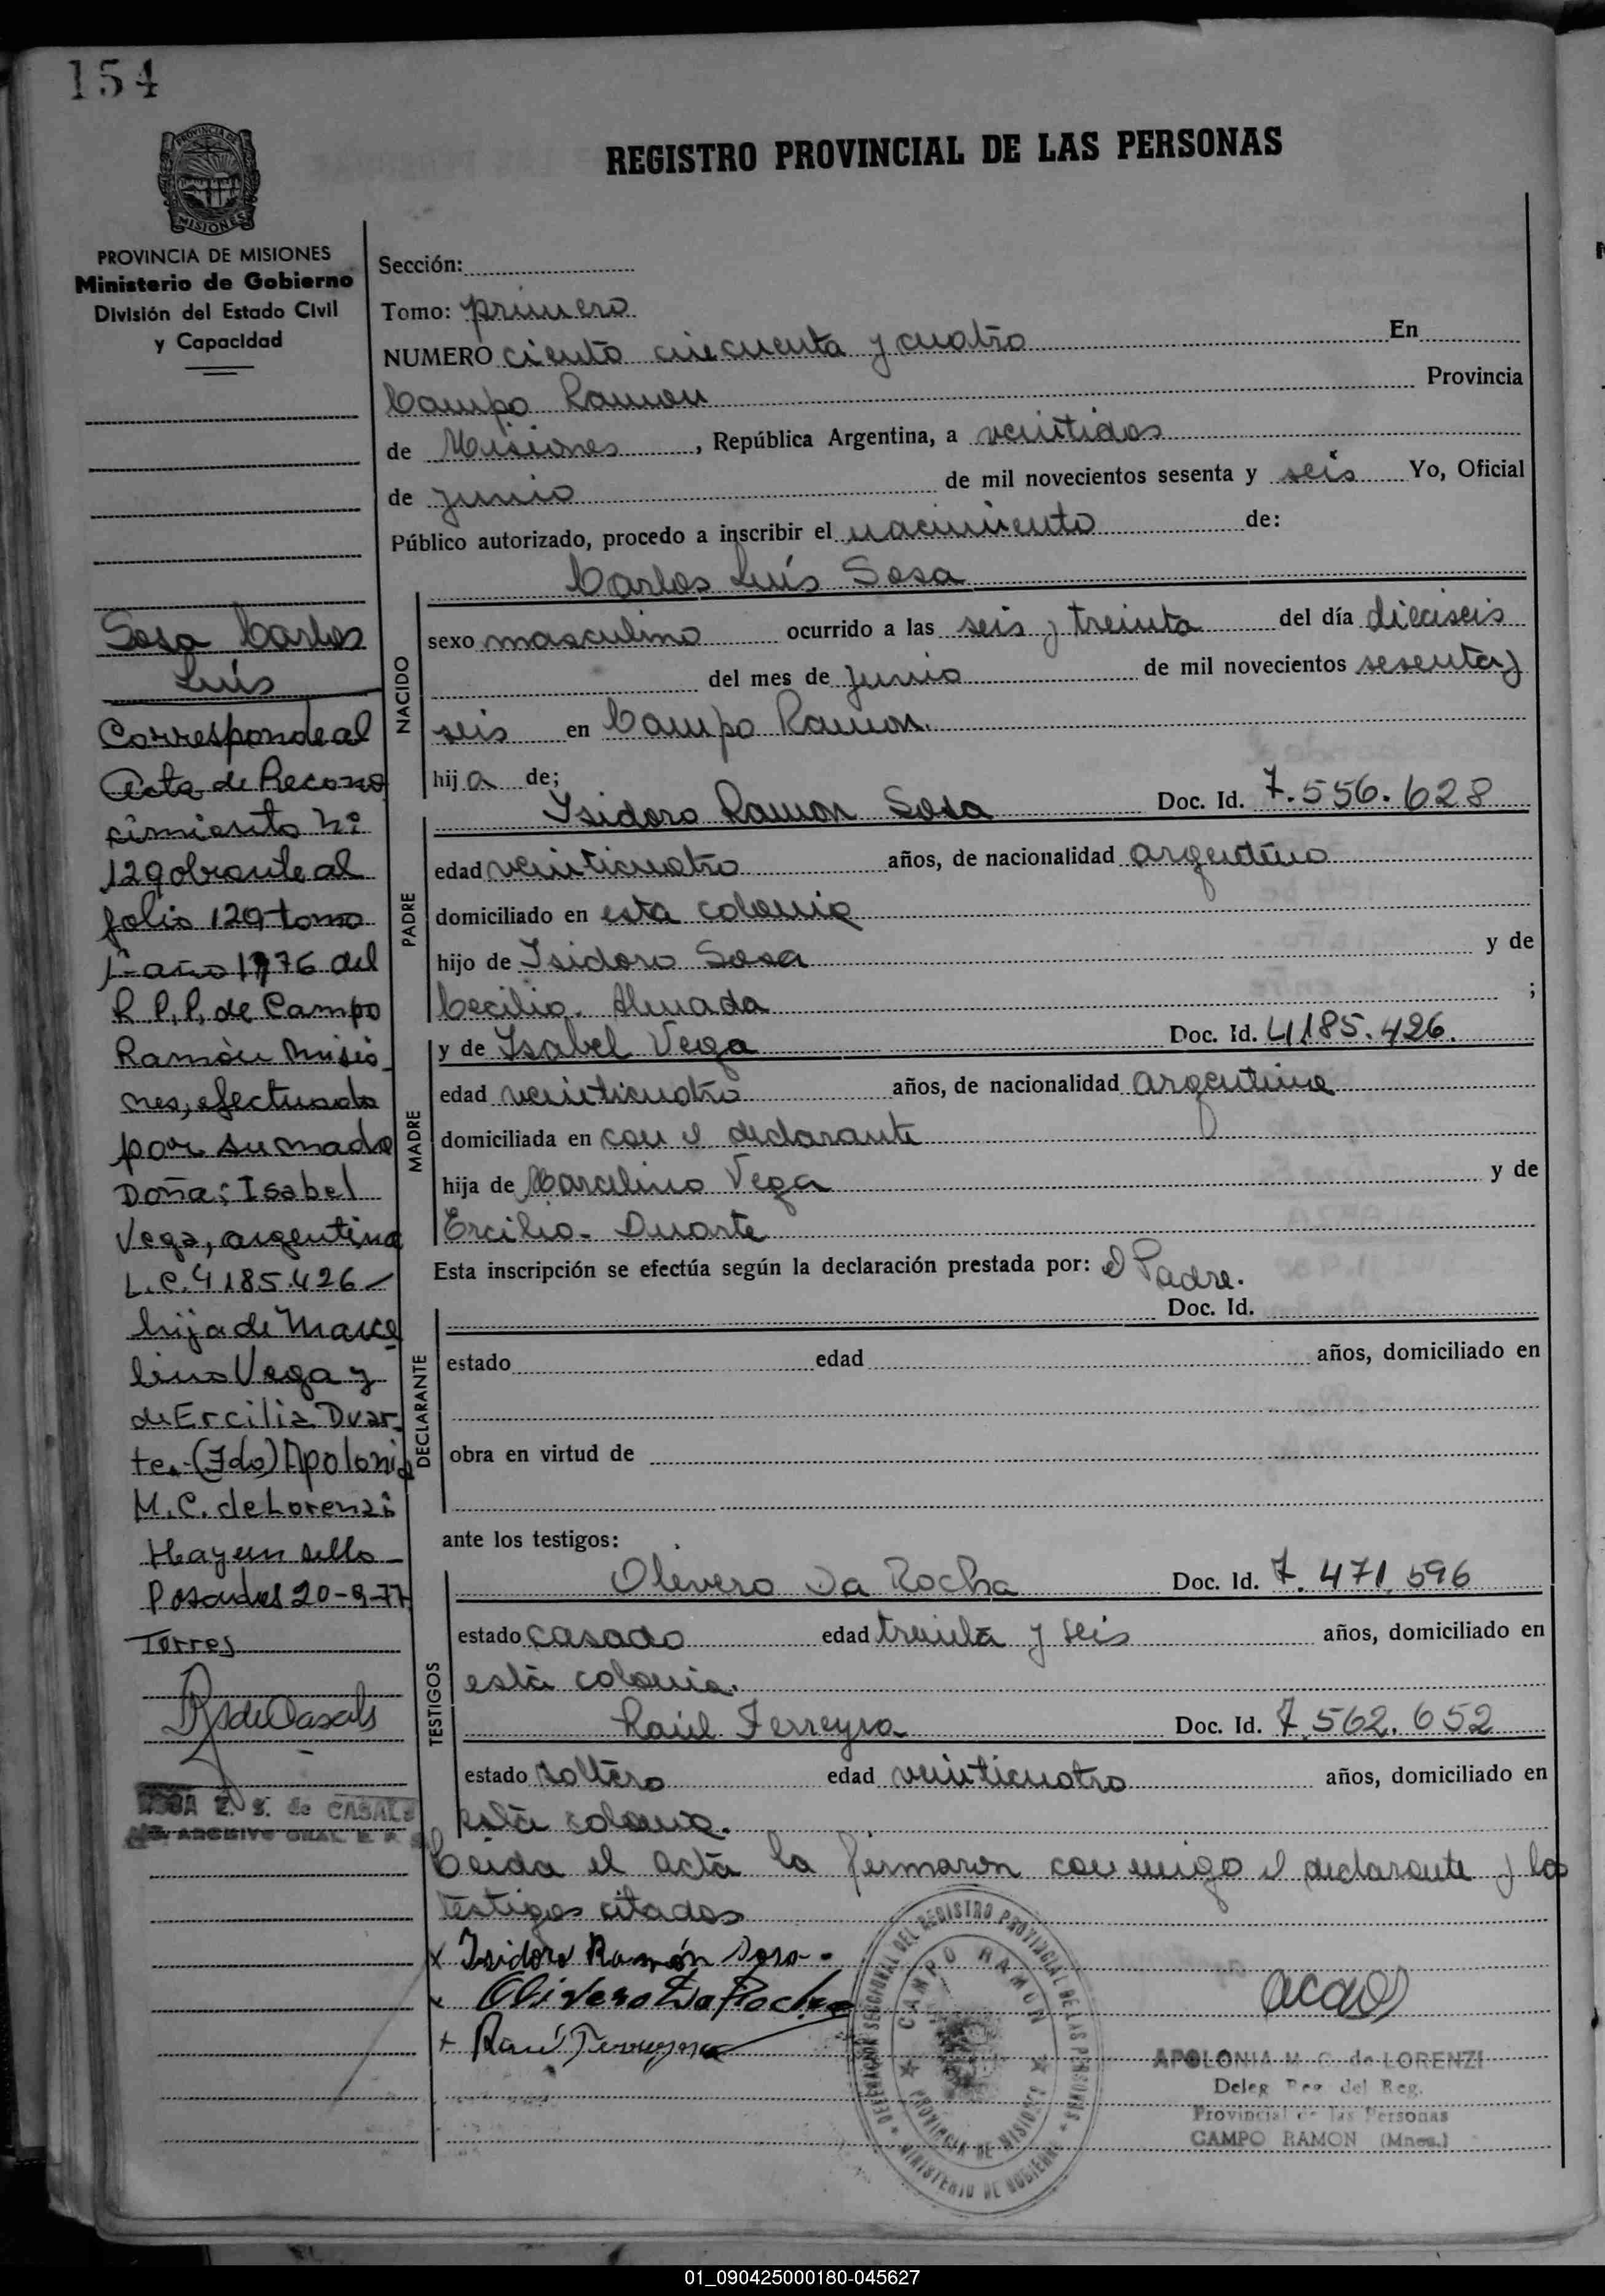 154
PROVINCIA DE MISIONES
REGISTRO PROVINCIAL DE LAS PERSONAS
PROVINCIA DE MISIONES
Ministerio de Gobierno
División del Estado Civil
y Capacidad
Sosa Carlos
Luís
Corresponde al
Acta de Recono
cimiento Nº
129 obrante al
folio 129 tomo
1º año 1976 del
R.P.P. de Campo
Ramón Misio
nes, efectuado
por su madre
Doña: Isabel
Vega, argentina
L.C. 4.185.426
hija de Marce
lino Vega y
de Ercilia Duar
te.-(Fdo) Apolonia
M. C. de Lorenzi
Hay un sello
Posadas 20-9-77
Torres
E. S. de CASALS
ARCHIVO GRAL. R. P.
Sección:
Tomo: primero
NUMERO ciento cincuenta y cuatro En
Campo Ramon Provincia
de Misiones, República Argentina, a veintidos
de junio de mil novecientos sesenta y seis Yo, Oficial
Público autorizado, procedo a inscribir el nacimiento de:
Carlos Luís Sosa
NACIDO
sexo masculino ocurrido a las seis y treinta del día dieciseis
del mes de junio de mil novecientos sesenta y
seis en Campo Ramon.
hija de;
PADRE
Isidoro Ramon Sosa Doc. Id. 7.556.628
edad veinticuatro años, de nacionalidad argentino
domiciliado en esta colonia
hijo de Isidoro Sosa y de
Cecilia Almada ;
MADRE
y de Isabel Vega Doc. Id. 4.185.426.
edad veinticuatro años, de nacionalidad argentina
domiciliada en con el declarante
hija de Marcelino Vega y de
Ercilia Duarte
Esta inscripción se efectúa según la declaración prestada por: el Padre.
DECLARANTE
Doc. Id.
estado edad años, domiciliado en
obra en virtud de
ante los testigos:
TESTIGOS
Olivero Da Rocha Doc. Id. 7.471.596
estado casado edad treinta y seis años, domiciliado en
esta colonia.
Raúl Ferreyra Doc. Id. 7.562.652
estado soltero edad veinticuatro años, domiciliado en
esta colonia.
Leida el acta la firmaron conmigo el declarante y los
testigos citados
x Isidoro Ramón Sosa.
x Olivero Da Rocha
+ Raúl Ferreyra
DELEGACION SECCIONAL DEL REGISTRO PROVINCIAL DE LAS PERSONAS
MINISTERIO DE GOBIERNO
CAMPO RAMON
PROVINCIA DE MISIONES
APOLONIA M. C. de LORENZI
Deleg. Reg. del Reg.
Provincial de las Personas
CAMPO RAMON (Mnes.)
01_090425000180-045627